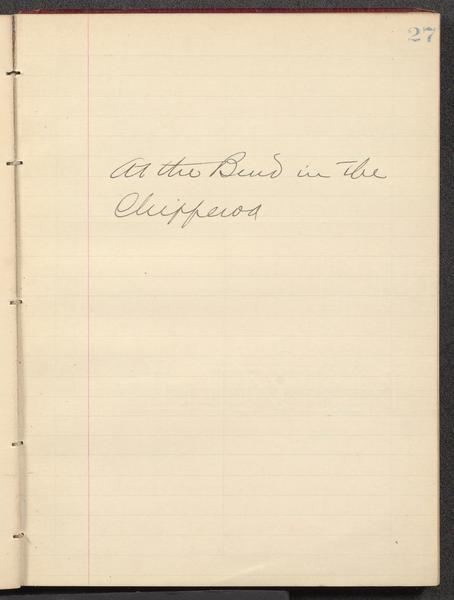 27
At the Bend in the
Chippewa